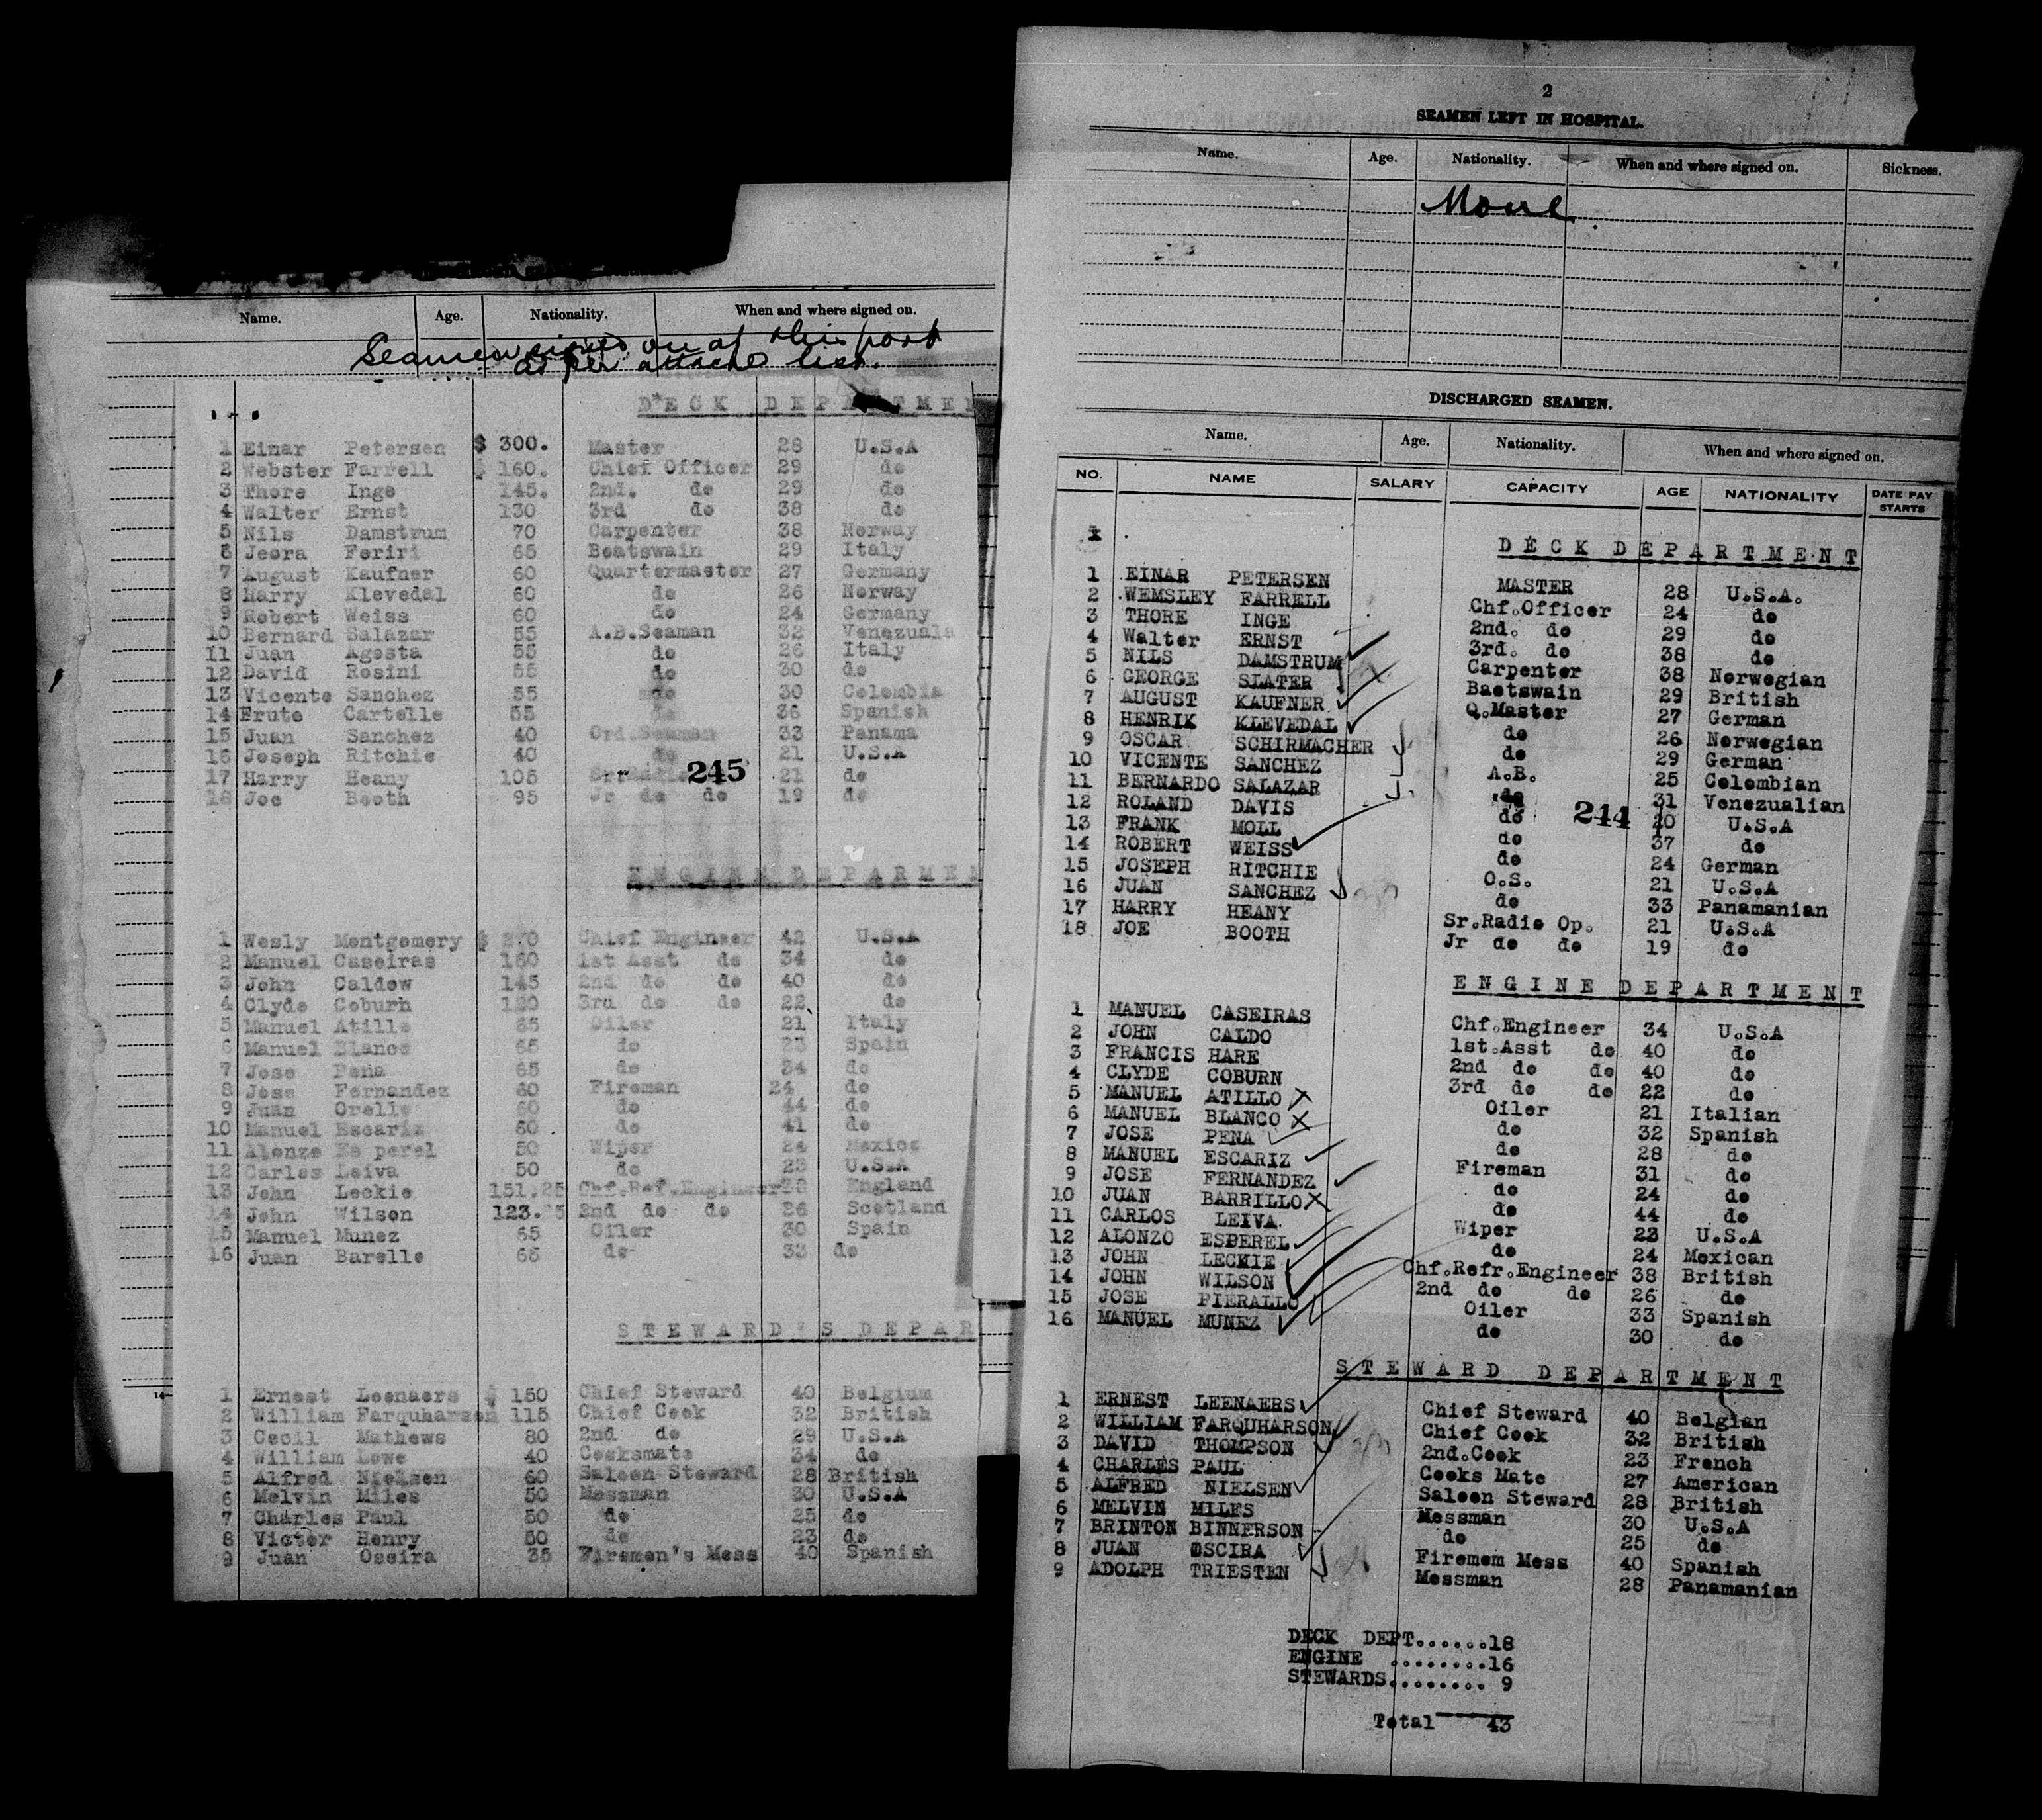 Name. Age. Nationality. When and where signed on.
Seamen signed on at this port
as per attache list.
DECK DEPARTMEN
1 Einar Petersen $ 300. Master 28 U.S.A
2 Webster Farrell $ 160. Chief Officer 29 do
3 Thore Inge 145. 2nd. do 29 do
4 Walter Ernst 130 3rd do 38 do
5 Nils Damstrum 70 Carpenter 38 Norway
6 Jeora Feriri 65 Boatswain 29 Italy
7 August Kaufner 60 Quartermaster 27 Germany
8 Harry Klevedal 60 do 26 Norway
9 Robert Weiss 60 do 24 Germany
10 Bernard Salazar 55 A.B.Seaman 32 Venezuala
11 Juan Agosta 55 do 26 Italy
12 David Rosini 55 do 30 do
13 Vicente Sanchez 55 do 30 Colombia
14 Fruto Cartelle 55 do 36 Spanish
15 Juan Sanchez 40 Ord.Seaman 33 Panama
16 Joseph Ritchie 40 do 21 U.S.A
17 Harry Heany 105 Sr Radio 245 21 do
18 Joe Booth 95 Jr do do 19 do
ENGINE DEPARMEN
1 Wesly Montgomery $ 270 Chief Engineer 42 U.S.A
2 Manuel Caseiras 160 1st Asst do 34 do
3 John Caldow 145 2nd do do 40 do
4 Clyde Coburh 120 3rd do do 22 do
5 Manuel Atillo 65 Oiler 21 Italy
6 Manuel Blanco 65 do 23 Spain
7 Jose Pena 65 do 34 do
8 Jose Fernandez 60 Fireman 24 do
9 Juan Orello 60 do 44 do
10 Manuel Escariz 60 do 41 do
11 Alonzo Es perel 50 Wiper 24 Mexico
12 Carlos Leiva 50 do 23 U.S.A
13 John Leckie 151.25 Chf.Ref.Engineer 38 England
14 John Wilson 123. 5 2nd do do 26 Scotland
15 Manuel Munez 65 Oiler 30 Spain
16 Juan Barelle 65 do 33 do
STEWARD'S DEPAR
14
1 Ernest Leenaers $ 150 Chief Steward 40 Belgium
2 William Farquharson 115 Chief Cook 32 British
3 Cecil Mathews 80 2nd do 29 U.S.A
4 William Lowe 40 Cooksmate 34 do
5 Alfred Nielsen 60 Saloon Steward 28 British
6 Melvin Miles 50 Messman 30 U.S.A
7 Charles Paul 50 do 25 do
8 Victor Henry 50 do 23 do
9 Juan Oseira 35 Firemen's Mess 40 Spanish
2
SEAMEN LEFT IN HOSPITAL.
Name. Age. Nationality. When and where signed on. Sickness.
None
DISCHARGED SEAMEN.
Name. Age. Nationality. When and where signed on.
NO. NAME SALARY CAPACITY AGE NATIONALITY DATE PAY STARTS
1
DECK DEPARTMENT
1 EINAR PETERSEN MASTER 28 U.S.A.
2 WEMSLEY FARRELL Chf.Officer 24 do
3 THORE INGE 2nd. do 29 do
4 Walter ERNST 3rd. do 38 do
5 NILS DAMSTRUM Carpenter 38 Norwegian
6 GEORGE SLATER Baotswain 29 British
7 AUGUST KAUFNER Q.Master 27 German
8 HENRIK KLEVEDAL do 26 Norwegian
9 OSCAR SCHIRMACHER do 29 German
10 VICENTE SANCHEZ A.B. 25 Colombian
11 BERNARDO SALAZAR do 31 Venezualian
12 ROLAND DAVIS do 244 20 U.S.A
13 FRANK MOLL do 37 do
14 ROBERT WEISS do 24 German
15 JOSEPH RITCHIE O.S. 21 U.S.A
16 JUAN SANCHEZ do 33 Panamanian
17 HARRY HEANY Sr.Radio Op. 21 U.S.A
18 JOE BOOTH Jr do do 19 do
ENGINE DEPARTMENT
1 MANUEL CASEIRAS Chf.Engineer 34 U.S.A
2 JOHN CALDO 1st.Asst do 40 do
3 FRANCIS HARE 2nd do do 40 do
4 CLYDE COBURN 3rd do do 22 do
5 MANUEL ATILLO Oiler 21 Italian
6 MANUEL BLANCO do 32 Spanish
7 JOSE PENA do 28 do
8 MANUEL ESCARIZ Fireman 31 do
9 JOSE FERNANDEZ do 24 do
10 JUAN BARRILLO do 44 do
11 CARLOS LEIVA. Wiper 23 U.S.A
12 ALONZO ESPEREL do 24 Mexican
13 JOHN LECKIE Chf.Refr.Engineer 38 British
14 JOHN WILSON 2nd do do 26 do
15 JOSE PIERALLO Oiler 33 Spanish
16 MANUEL MUNEZ do 30 do
STEWARD DEPARTMENT
1 ERNEST LEENAERS Chief Steward 40 Belgian
2 WILLIAM FARQUHARSON Chief Cook 32 British
3 DAVID THOMPSON 2nd.Cook 23 French
4 CHARLES PAUL Cooks Mate 27 American
5 ALFRED NIELSEN Saloon Steward 28 British
6 MELVIN MILES Messman 30 U.S.A
7 BRINTON BINNERSON do 25 do
8 JUAN OSCIRA Firemem Mess 40 Spanish
9 ADOLPH TRIESTEN Messman 28 Panamanian
DECK DEPT......18
ENGINE ........16
STEWARDS........ 9
Total 43